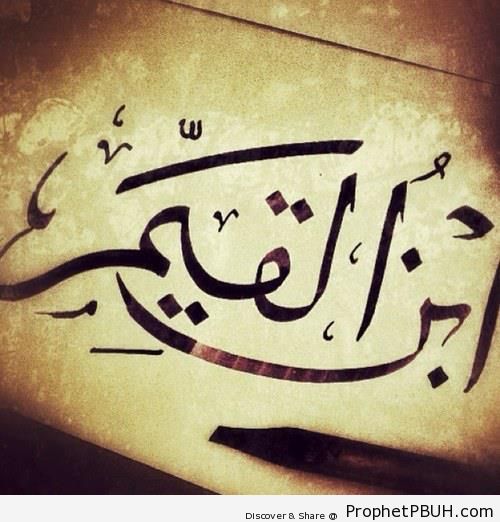 ابنُ القيِّم
Discover & Share @ ProphetPBUH.com